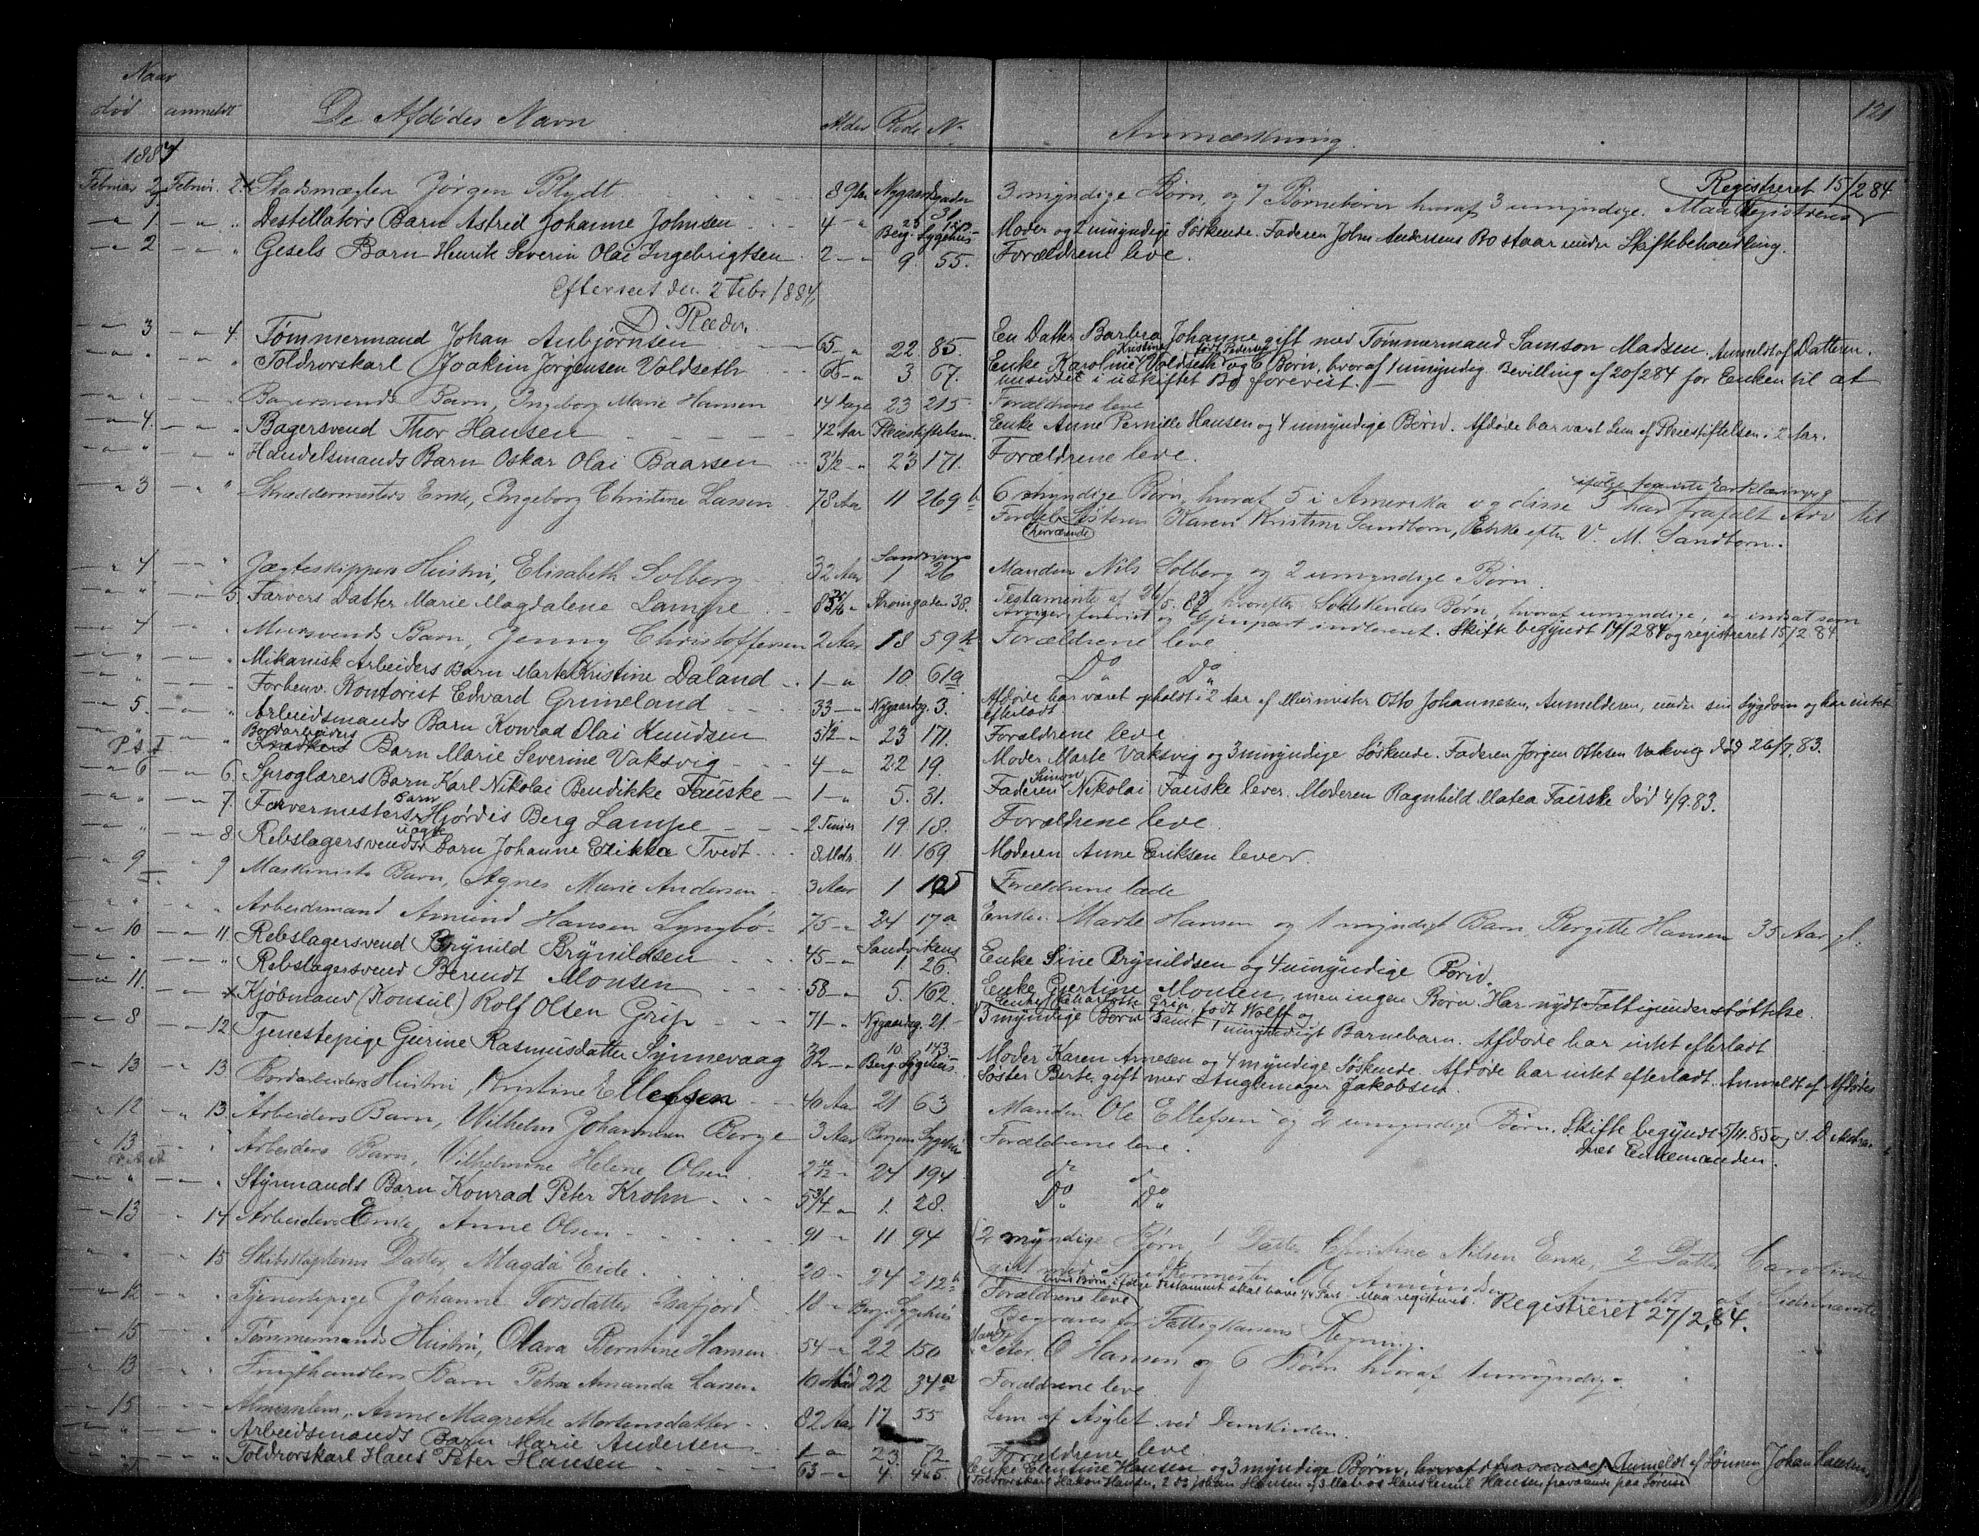 Naar
død anmeldt De Afdødes Navn Alder Rode No Anmærkning. 121
1884
Februar 2 Februar 2 Stadsmægler Jørgen Blydt 89 Aar Nygaardsgaden 31 3 myndige Børn, og 7 Børnebørn hvoraf 3 umyndige. Registreret 15/2 84
" 1. " " Destellatørs Barn Astrid Johanne Johnsen 4 " Berg. Sygehus Moder og 2 umyndige Søskende. Faderen John Andersens Bo staar under Skiftebehandling.
" 2 " " Gesels Barn Henrik Severin Olai Ingebrigtsen 2 " 9. 55. Forældrene leve.
Efterseet den 2 Febr 1884
D. Ræder.
" 3 " 4. Tømmermand Johan Anbjørnsen 65 " 22 85. En Datter Barbra Johanne gift med Tømmermand Samson Madsen. Anmeldt af Datteren.
" " " " Toldrorskarl Joakim Jørgensen Voldseth 66 " 3. 67. Enke Karoline Kristine Voldseth født Pedersen og 6 Børn, hvoraf 1 umyndig Bevilling af 20/2 84 for Enken til at
uskiftet Bo forevist.
" " " " Bagersvends Barn, Ingeborg Marie Hansen 14 Dage 23 215 Forældrene leve
" 4. " " Bagersvend Thor Hansen 42 Aar Pleiestiftelsen. Enke Anne Pernille Hansen og 4 umyndige Børn. Afdøde har været Lem af Pleiestiftelsen i 2 Aar.
" " " " Handelsmands Barn Oskar Olai Baarsen 3 1/2 " 23 171. Forældrene leve.
" 3 " " Skræddermesters Enke, Ingeborg Christine Lassen 78 Aar 11 269 b 6 myndige Børn, hvoraf 5 i Amerika og disse 5 har ifølge Erklæring frafalt Arv til
Fordel Søsteren Karen Kristine Sandborn, Enke efter V. M. Sandborn.
(herværende)
" 4 " " Jægteskippers Hustru, Elisabeth Solberg 32 Aar 1 26 Manden Nils Solberg og 2 umyndige Børn.
" " " 5. Farvers Datter Marie Magdalene Lampe 83 " Strømgaden 38. Testamente af 26/5. 83 hvorefter Søskendes Børn, hvoraf umyndige, er indsat som
Arvinger forevist og Gjenpart indleveret. Skifte begyndt 14/2 84 og registreret 15/2 84
" 4 " " Muursvends Barn, Jenny Christoffersen 2 Aar 18 59 b Forældrene leve
" " " " Mekanisk Arbeiders Barn Marte Kristine Daland 1 " 10 61a Do Do
" " " " Forhenv. Kontorist Edvard Grimeland 33 " Nygaardsg. 3. Afdøde har været opholdt i 2 Aar af Murmester Otto Johannesen, Anmelderen, under sin Sygdom og har intet
efterladt
" 5. " " Arbeidsmands Barn Konrad Olai Knudsen 5 1/2 " 23 171. Forældrene leve
" " " " Bordarbeiders Barn Marie Severine Vaksvig 4 " 22 19. Moder Marte Vaksvig og 3 umyndige Søskende. Faderen Jørgen Ottesen Vaksvig død 26/7. 83.
" 6 " 6. Sproglærers Barn Karl Nikolai Bendikke Fauske 1 " 5. 31. Faderen Simon Nikolai Fauske lever. Moderen Ragnhild Matea Fauske død 4/9. 83.
" " " 7. Farvermesters Barn Hjørdis Berg Lampe 2 Timer 19 18. Forældrene leve.
" " " 8. Rebslagersvends uægte Barn Johanne Erikka Tvedt 8 Mdr. 11. 169 Moderen Anne Eriksen lever.
" 9 " 9 Maskinists Barn, Agnes Marie Andersen 3 Aar 1 105 Forældrene leve
" " " " Arbeidsmand Amund Hansen Lyngbø 75 " 24 17a Enke Marte Hansen og 1 myndigt Barn, Bergitte Hansen 35 Aar gl.
" 10 " 11. Rebslagersvend Brynild Brynildsen 45 " Sandvikens 1. 26. Enke Sine Brynildsen og 4 umyndige Børn.
" " " " Rebslagersvend Berendt Monsen 58 " 5. 162. Enke Gjertine Monsen, men ingen Børn. Har nydt Fattigunderstøttelse.
" 11. " " Kjøbmand (Konsul) Rolf Olsen Grip 71 " Nygaardsg. 21 Enke Charlotte Grip født Wolff og
5 myndige Børn samt 1 umyndigt Barnebarn.
" 8 " 12 Tjenestepige Gurine Rasmusdatter Synnevaag 32 " Berg. Sygehus. Moder Karen Arnesen og 4 myndige Søskende. Afdøde har intet efterladt. Anmeldt af Afdødes
Søster Berte, gift med Snglemager Jakobsen.
" 13 " 13 Bordarbeiders Hustru, Kristine Ellefsen 40 Aar 21 63 Manden Ole Ellefsen og 2 umyndige Børn. Skifte begyndt 5/11. 85 og
Enkemanden.
" 12 " 13 Arbeiders Barn, Wilhelm Johannesen Berge 3 Aar Bergens Sygehus Forældrene leve.
" 13 " " Arbeiders Barn, Vilhelmine Helene Olsen 2 " 24 194 do do
" " " " Styrmands Barn Konrad Peter Krohn 5 3/4 " 1. 28. Do Do
" 13 " 14 Arbeiders Enke, Anne Olsen 91 " 11 94 2 myndige Børn, 1 Datter Christine Nilsen Enke, 2 Datter Caroline
gift med
" " " 15 Skibskapteins Datter, Magda Eide 20 " 24 212 b Forældrene leve Registreret 27/2. 84.
" 12 " " Tjenestepige Johanne Torsdatter 18 " Berg. Sygehus Begraves for Fattigkassens Regning.
" 15 " " Tømmermands Hustru, Olava Berntine Hansen 54 " 22 150 Mand Peter O Hansen og 6 Børn hvoraf umyndige.
" 13 " " Frugthandlers Barn Petra Amanda Larsen 10 Mdr 22 34 a Forældrene leve.
" 15 " " Almisselem, Anne Magrethe Mortensdatter 82 Aar 17 55 Lem af Asylet ved Domkirken.
" " " " Arbeidsmands Barn Marie Andersen 1 " 23. 72 Forældrene leve.
" " " " Toldrorskarl Hans Peter Hansen 63 " 4. Enke Elentine Hansen og 3 myndige Børn, Anmeldt af Sønnen Johan Hansen,
Toldrorskarl Hakon Hansen, 2 Johan Hansen 3 Matros Hans Emil Hansen fraværende paa Søreise